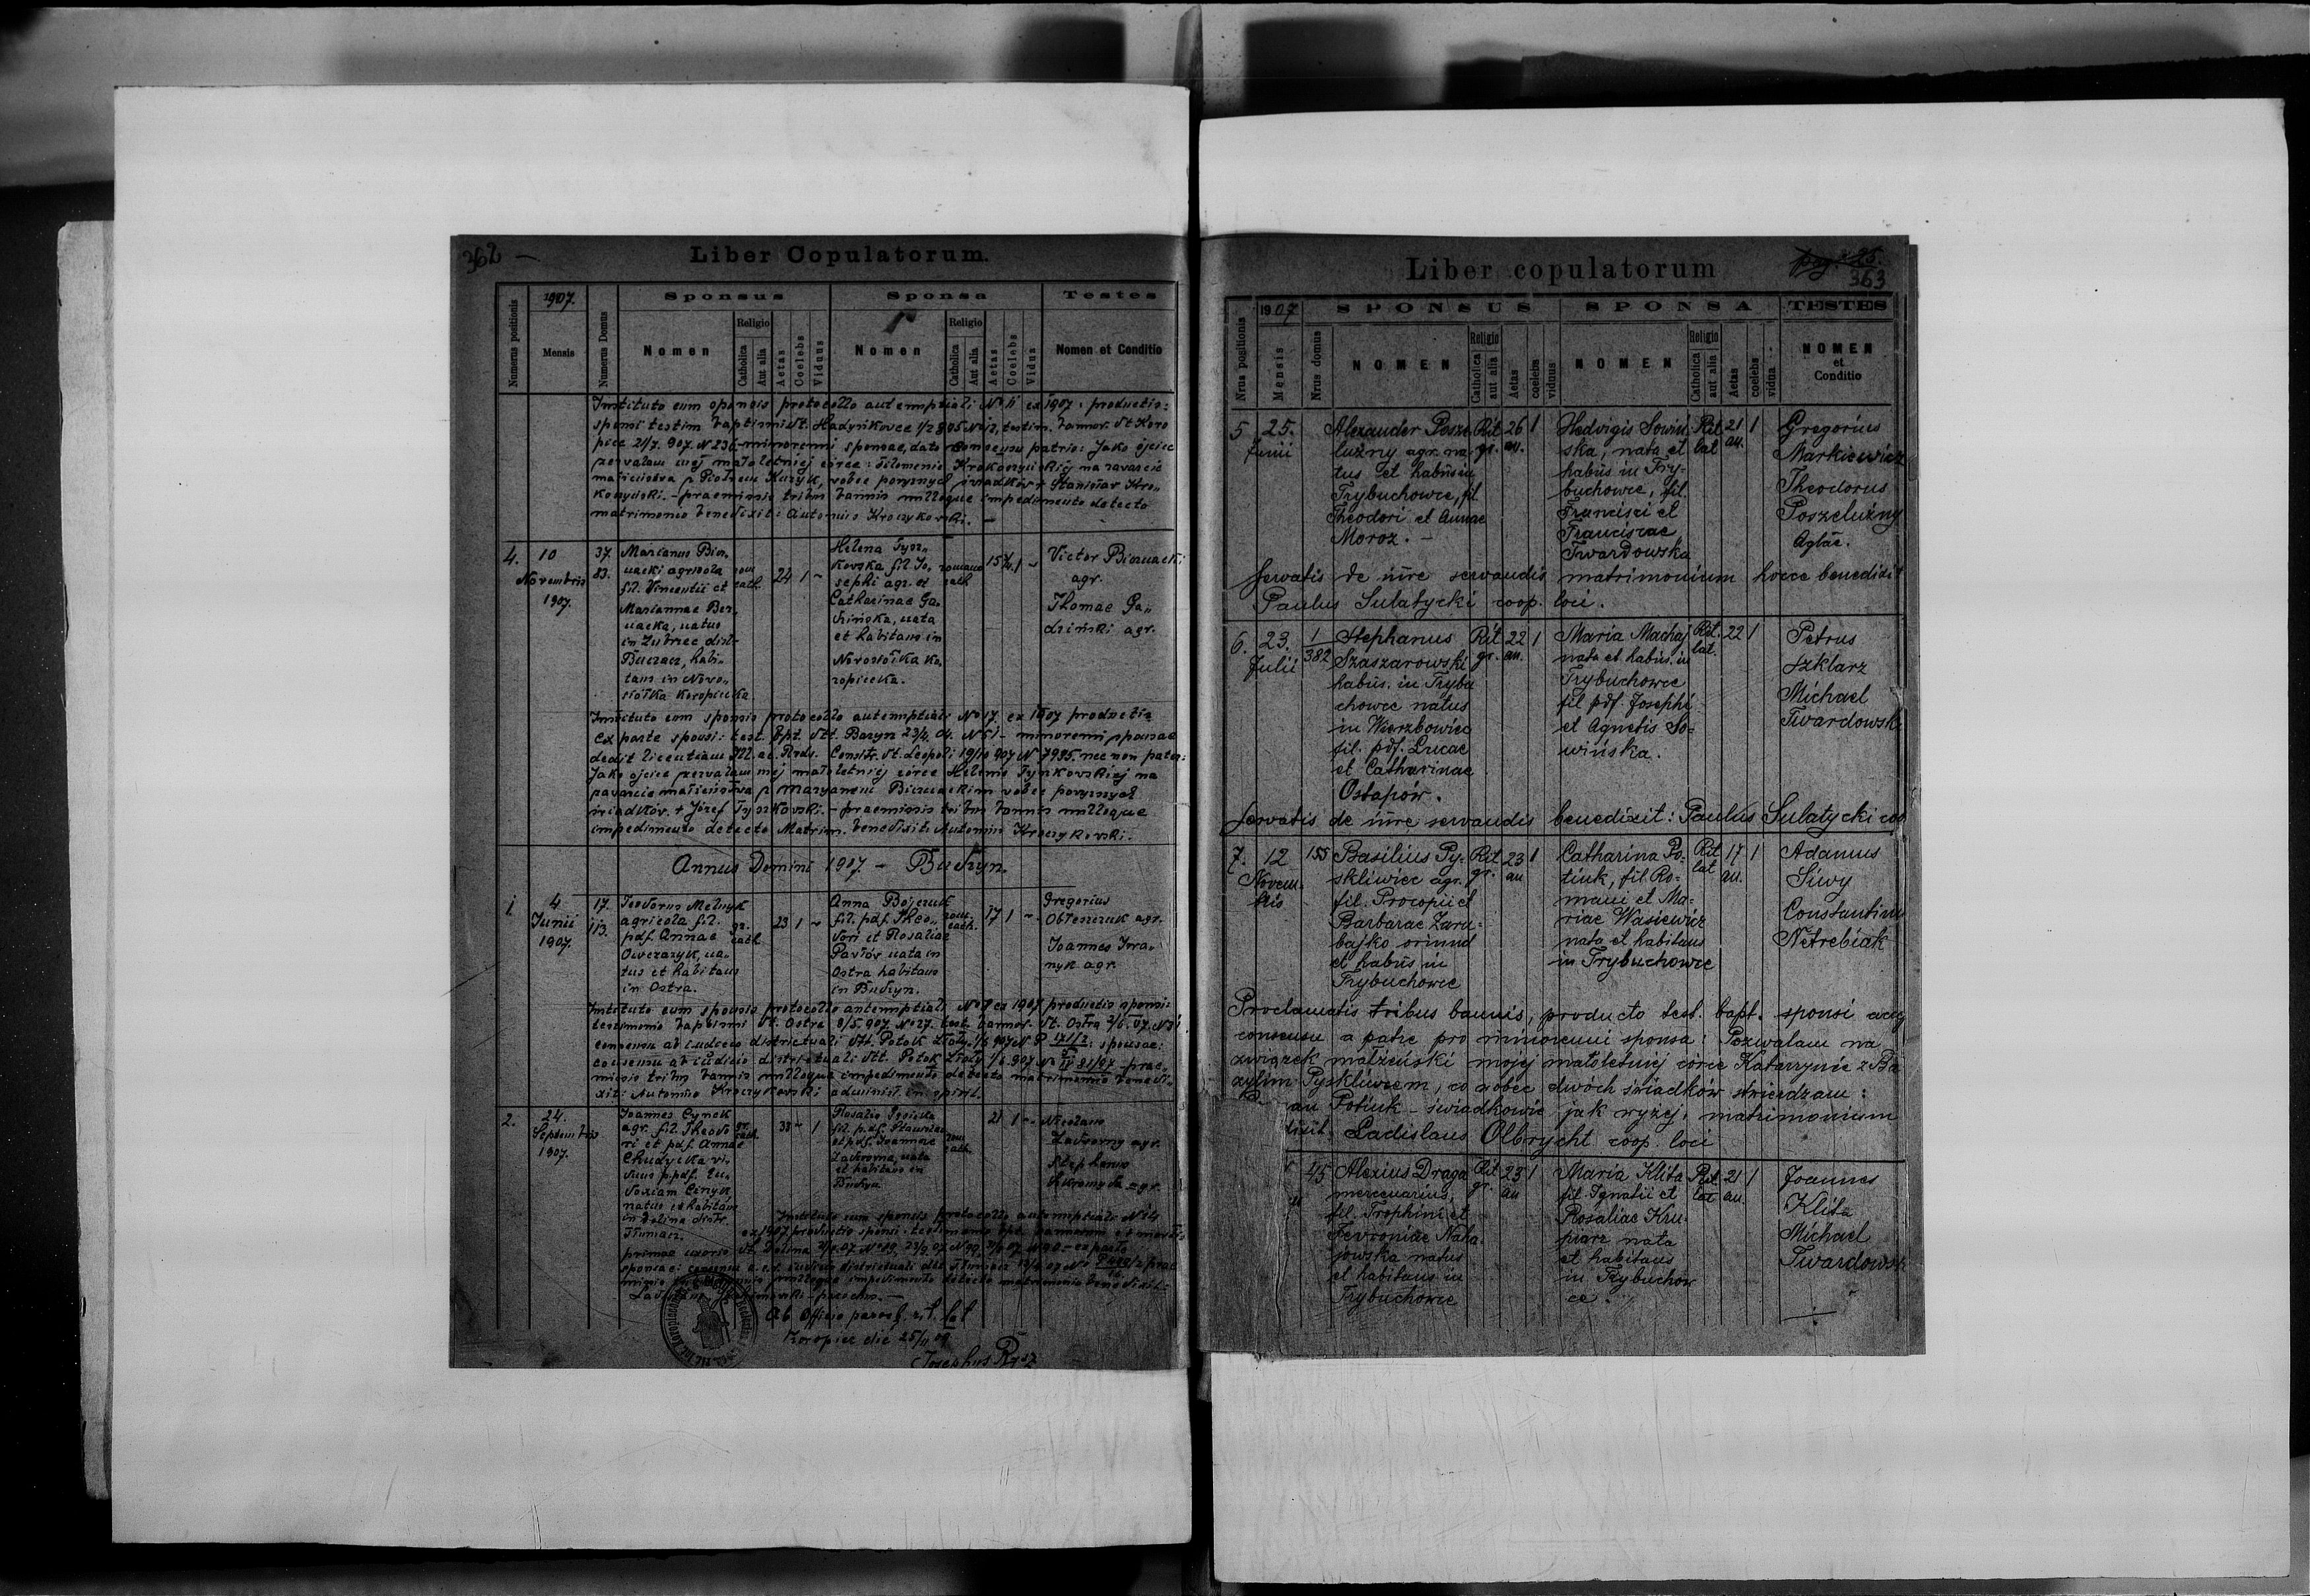 362 –
Liber Copulatorum.
Numerus positionis
1907.
Mensis
Numerus Domus
Sponsus
Nomen
Religio
Catholica
Aut alia
Aetas
Coelebs
Viduus
Sponsa
Nomen
Religio
Catholica
Aut alia
Aetas
Coelebs
Vidua
Testes
Nomen et Conditio
Instituto cum sponsis protocollo antenuptiali No 11 ex 1907. productis:
sponsi testim baptismi Hadyńkovce
pice 21/7. 907. N 236 minorenni sponsae, dato consensu patris: Jako ojciec
pozvalam mej małoletniej córce: Filomenie na zavarcie
małżeństva z Piotrem Kuzyk, vobec povyższych świadków + Stanisłav
– praemissis tribus bannis nulloque impedimento detecto
matrimonio benedixit: Antonius Kroczykovski. –
4.
10
Novembris
1907.
37.
83.
Marianus Bier„
nacki agricola
fil. Vincentii et
Mariannae Ber„
nacka, natus
in Zubrzec distr.
Buczacz, habi„
tans in Novo„
siółka Koropiecka
rom
cath.
24
1
–
Helena Tysz„
kovska fil. Jo„
sephi agr. et
Catharinae Ga„
dzińska, nata
et habitans in
Novosiółka Ko„
ropiecka.
romano
cath
1
–
Victor Biernacki
agr.
Thomas Ga„
dziński agr.
Instituto cum sponsis protocollo antenuptiali No 17. ex 1907 productis
ex parte sponsi: test. bpt. Barysz 23/4. 04. N 51 – minorenni sponsae
dedit licentiam Consist. Leopoli 19/10 907 N 7995. nec non pater:
Jako ojciec pozvalam mej małoletniej córce Helenie na
zavarcie małżeństva z Maryanem Biernackim vobec povyższych
świadków. + Józef Tyszkovski. – praemissis tribus bannis nulloque
impedimento detecto Matrim. benedixit: Antonius Kroczykovski.
Annus Domini 1907. – Budzyn.
1.
4
Junii
1907.
17.
113.
Teodorus Melnyk
agricola fil.
pdf. Annae
Owczarzyk, na„
tus et habitans
in Ostra.
gr.
cath
23
1
–
Anna Bojczuk
fil. pdf. Theo„
dori et Rosaliae
Pavlóv nata in
Ostra habitans
in Budzyn.
rom.
cath.
17
1
–
Gregorius
agr.
Joannes Ivra„
nyk agr.
Instituto cum sponsis protocollo antenuptiali No 7 ex 1907 productis sponsi:
testimonio baptismi Ostra 8/5. 907. No 27. test. bannor. Ostra 2/6. 07.
consensu ab iudicio districtuali Potok Złoty sponsae:
consensu ab iudicio districtuali Potok Złoty 1/6 907 prae„
missis tribus bannis nulloque impedimento detecto matrimonio bened„
xit: Antonius Kroczykovski administ. in spirit.
2.
24.
Septembris
1907.
Joannes Cynyk
agr. fil. Theodo
ri et pdf. Annae
Chudycka vi„
duus p. pdf. Eu„
natus et habitans
in Dolina distr.
Tłumacz.
gr.
cath.
38
–
1
Rosalia
fil. p.df. Stanislai
et pdf. Joannae
Zadvorna, nata
et habitans in
Budzyn
rom
cath
21
1
–
Nicolaus
Zadvorny agr.
Stephanus
agr.
Instituto cum sponsis protocollo antenuptiali N 14
ex 1907 productis sponsi: testimonio bpt. bannorum et mortis
primae uxoris Dolina
sponsae: consensu iudicio districtuali Tłumacz
missis nulloque impedimento detecto matrimonio benedixit:
parochus. –
Ab Officio paroch. rit. lat
Koropiec die 25/11 09
Josephus Rysz
Liber copulatorum
363
Nrus positionis
1907
Mensis
Nrus domus
SPONSUS
NOMEN
Religio
Catholica
aut alia
Aetas
coelebs
viduus
SPONSA
NOMEN
Religio
Catholica
aut alia
Aetas
coelebs
vidua
TESTES
NOMEN
et
Conditio
5
25.
Junii
Alexander Posze
luźny agr. na
tus et habns in
Trybuchowce, fil.
Theodori et Annae
Moroz. –
Rit.
gr.
26
an.
1
Hedvigis Sowiń
ska, nata et
habns in Try-
buchowce, fil.
Francisci et
Franciscae
Twardowska
Rit.
lat
21
an.
1
Gregorius
Markiewicz
Theodorus
Poszeluźny
Servatis de iure servandis matrimonium hocce benedixit
Paulus Sulatycki coop. loci.
6.
23.
Julii
1
382
Stephanus
Szaszarowski
habns. in Trybu
chowce natus
in Wierzbowiec
fil. pdf. Lucae
et Catharinae
Ostapów.
Rit.
gr.
22
an.
1
Maria Machaj
nata et habns. in
Trybuchowce
fil pdf. Josephi
et Agnetis So=
wińska.
Rit.
lat.
22
1
Petrus
Szklarz
Michael
Twardowski
Servatis de iure servandis benedixit: Paulus Sulatycki coo
7.
12
Novem-
bris
155
Basilius Py-
skliwiec agr.
fil. Procopii et
Barbarae Zaru=
bajko oriund
et habns in
Trybuchowce
Rit.
gr.
23
an
1
Catharina Po=
tiuk, fil. Ro-
mani et Ma-
riae Wasiewicz
nata et habitans
in Trybuchowce
Rit
lat
17
an.
1
Adamus
Siwy
Constantinus
Netrebiak
Proclamatis tribus bannis, producto test. bapt. sponsi acc
consensu a patre pro minorenni sponsa: Pozwalam na
związek małżeński mojej małoletniej córce Katarzynie z Ba
zylim Pyskliwcem, co wobec dwóch świadków stwierdzam:
an Potiuk – świadkowie jak wyżej, matrimonium
dixit. Ladislaus Olbrycht coop. loci
45
Alexius Draga
mercenarius,
fil. Trophimi et
Fevroniae Naha
jowska natus
et habitans in
Trybuchowce
Rit
gr.
23
an
1
Maria Klita
fil. Ignatii et
Rosaliae Kru-
piarz nata
et habitans
in Trybuchow
ce.
Rit.
lat
21
an.
1
Joannes
Klita
Michael
Twardowski